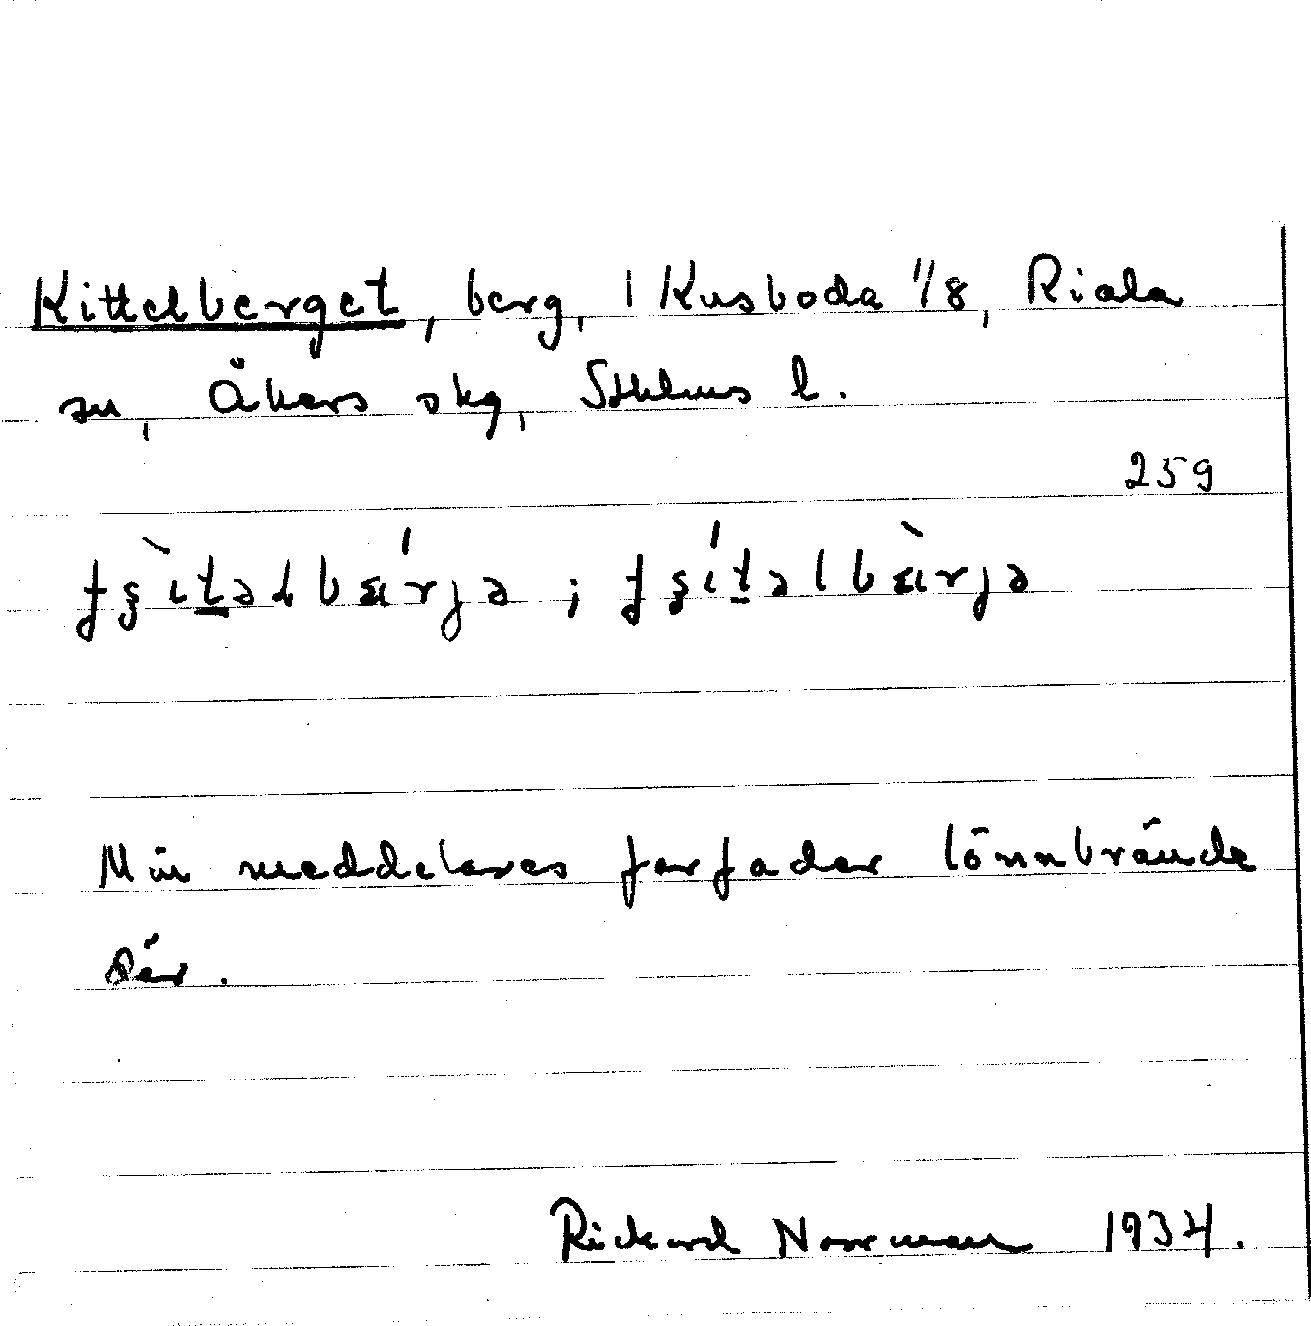 Kittelberget, berg, 1 Kusboda 1/8, Riala
sn, Åkers skg, Sthlms l.
259
ʈʂìt̠əlbǽrjə ; ʈʂít̠əlbæ̀rjə
Min meddelares farfader lönnbrände
där.
Rickard Norrman 1934.